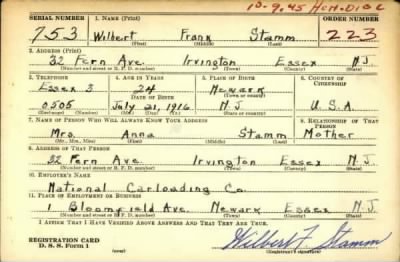 10-9-45 Hon. Disc
SERIAL NUMBER 1. NAME (Print) ORDER NUMBER
753 Wilbert Frank Stamm 223
(First) (Middle) (Last)
2. ADDRESS (Print)
32 Fern Ave. Irvington Essex N.J.
(Number and street or R. F. D. number) (Town) (County) (State)
3. TELEPHONE 4. AGE IN YEARS 5. PLACE OF BIRTH 6. COUNTRY OF CITIZENSHIP
Essex 3 24 Newark
DATE OF BIRTH (Town or county)
0505 July 21, 1916 N.J. U.S.A.
(Exchange) (Number) (Mo.) (Day) (Yr.) (State or country)
7. NAME OF PERSON WHO WILL ALWAYS KNOW YOUR ADDRESS 8. RELATIONSHIP OF THAT PERSON
Mrs. Anna Stamm Mother
(Mr., Mrs., Miss) (First) (Middle) (Last)
9. ADDRESS OF THAT PERSON
32 Fern Ave. Irvington Essex N.J.
(Number and street or R. F. D. number) (Town) (County) (State)
10. EMPLOYER'S NAME
National Carloading Co.
11. PLACE OF EMPLOYMENT OR BUSINESS
1 Bloomfield Ave. Newark Essex N.J.
(Number and street or R. F. D. number) (Town) (County) (State)
I AFFIRM THAT I HAVE VERIFIED ABOVE ANSWERS AND THAT THEY ARE TRUE.
REGISTRATION CARD
D. S. S. Form 1 (over)
Wilbert F Stamm
(Registrant's signature)